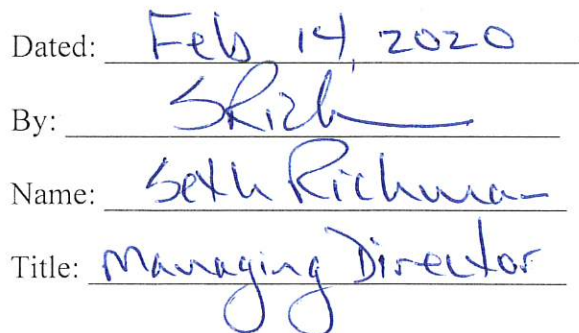 Dated: Feb 14, 2020
By: SRich
Name: Seth Richman
Title: Managing Director